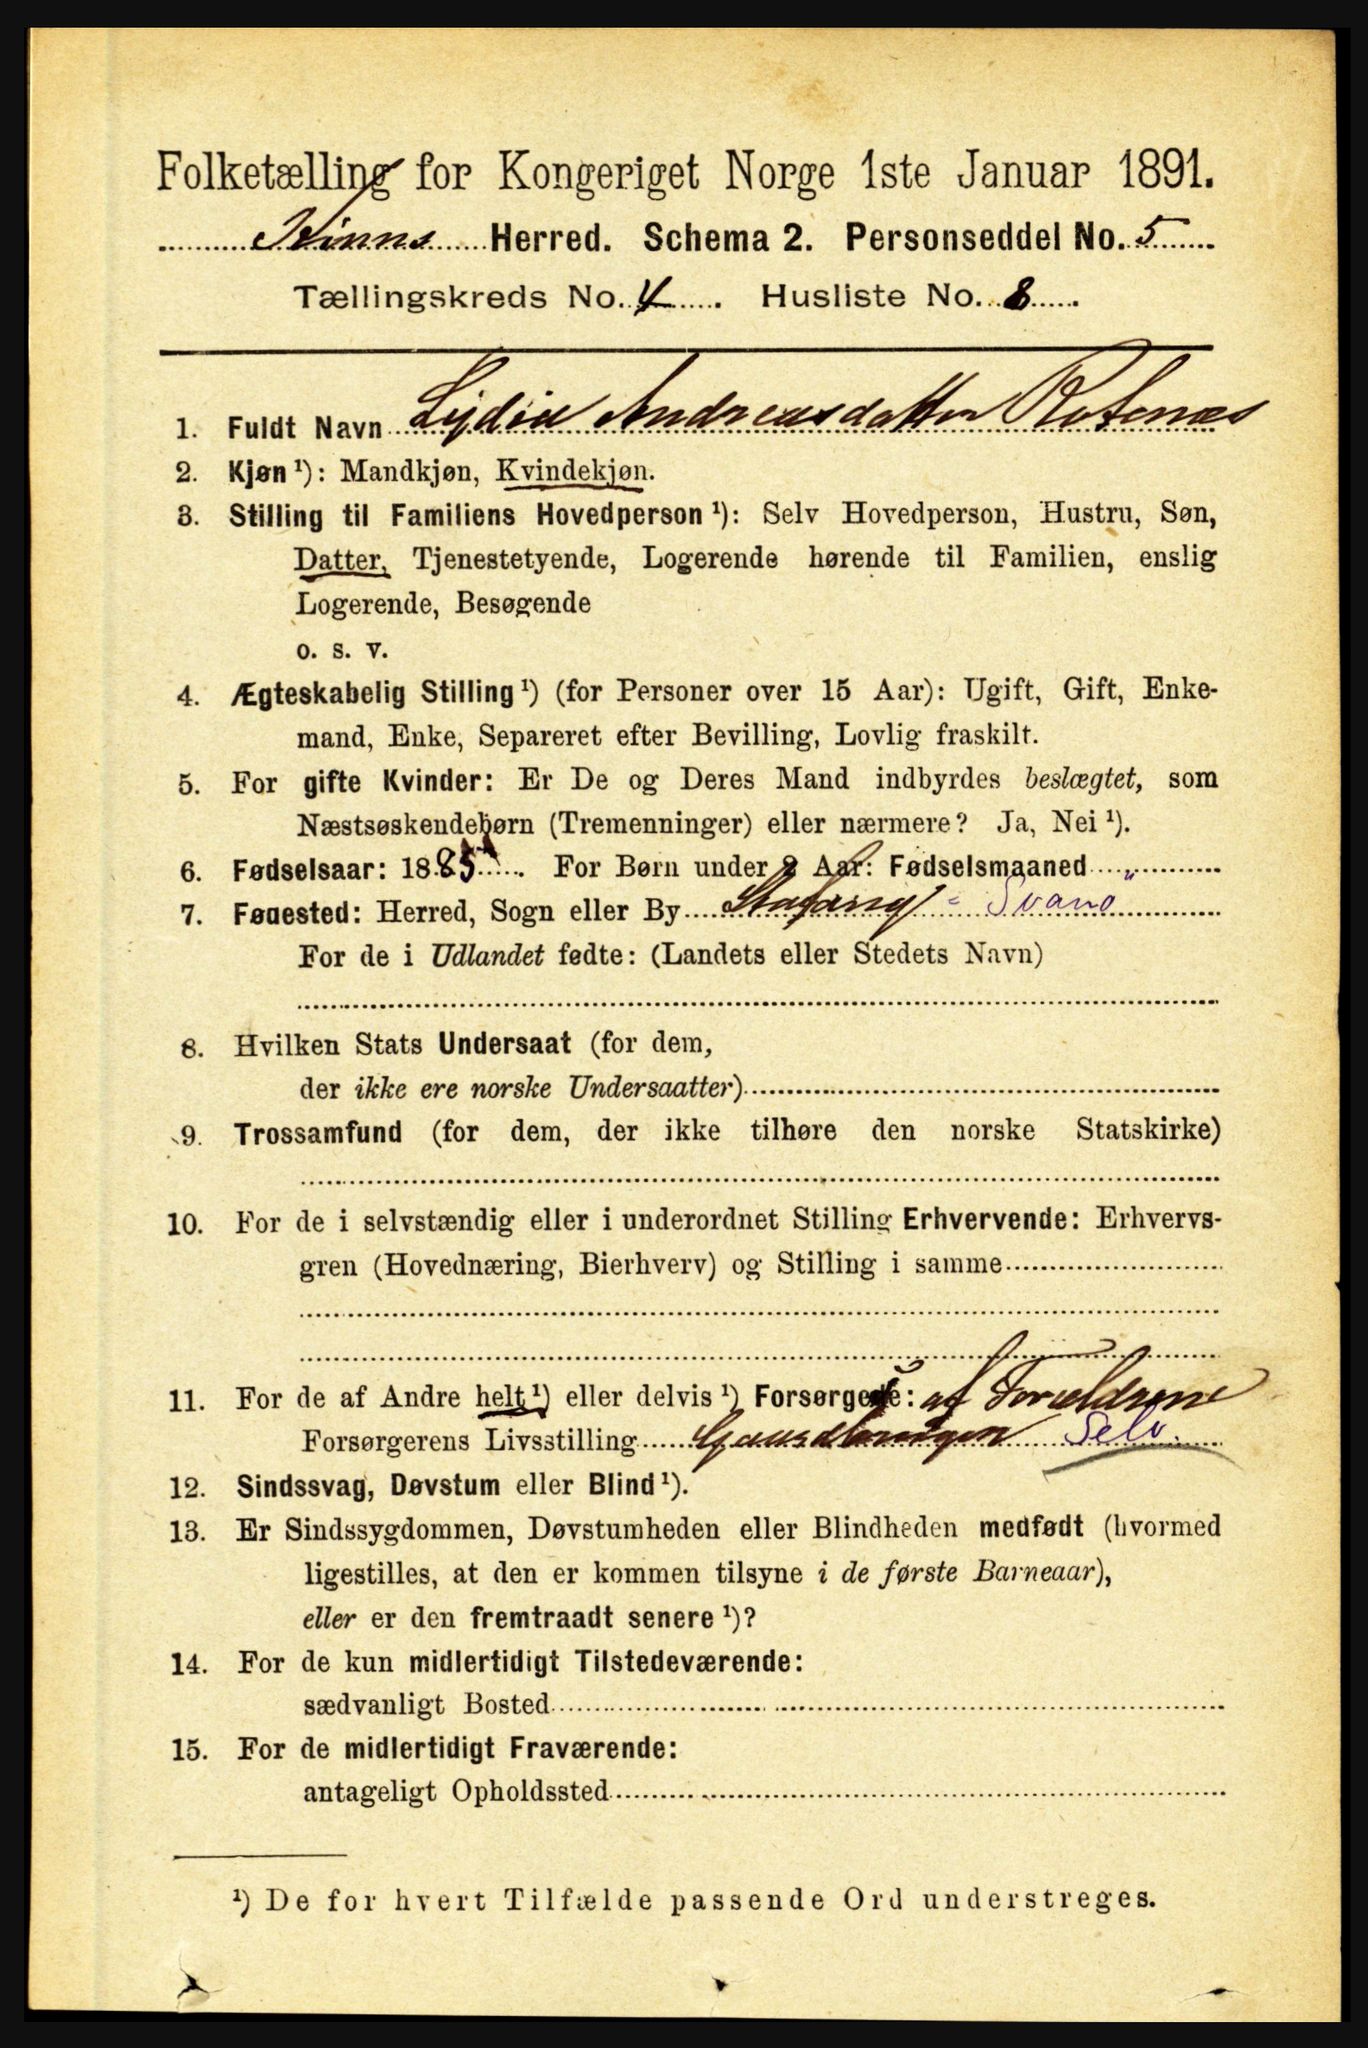 Folketælling for Kongeriget Norge 1ste Januar 1891.
Kinns Herred. Schema 2. Personseddel No. 5
Tællingskreds No. 4. Husliste No. 8.
1. Fuldt Navn Lydia Andreasdatter Rotenæs
2. Kjøn ¹): Mandkjøn, Kvindekjøn.
3. Stilling til Familiens Hovedperson ¹): Selv Hovedperson, Hustru, Søn,
Datter, Tjenestetyende, Logerende hørende til Familien, enslig
Logerende, Besøgende
o. s. v.
4. Ægteskabelig Stilling ¹) (for Personer over 15 Aar): Ugift, Gift, Enke-
mand, Enke, Separeret efter Bevilling, Lovlig fraskilt.
5. For gifte Kvinder: Er De og Deres Mand indbyrdes beslægtet, som
Næstsøskendebørn (Tremenninger) eller nærmere? Ja, Nei ¹).
6. Fødselsaar: 1885. For Børn under 2 Aar: Fødselsmaaned
7. Fødested: Herred, Sogn eller By Stafang - Svanö
For de i Udlandet fødte: (Landets eller Stedets Navn)
8. Hvilken Stats Undersaat (for dem,
der ikke ere norske Undersaatter)
9. Trossamfund (for dem, der ikke tilhøre den norske Statskirke)
10. For de i selvstændig eller i underordnet Stilling Erhvervende: Erhvervs-
gren (Hovednæring, Bierhverv) og Stilling i samme
11. For de af Andre helt ¹) eller delvis ¹) Forsørgede: af Forældrene
Forsørgerens Livsstilling Gaardbrugen Selv.
12. Sindssvag, Døvstum eller Blind ¹).
13. Er Sindssygdommen, Døvstumheden eller Blindheden medfødt (hvormed
ligestilles, at den er kommen tilsyne i de første Barneaar),
eller er den fremtraadt senere ¹)?
14. For de kun midlertidigt Tilstedeværende:
sædvanligt Bosted
15. For de midlertidigt Fraværende:
antageligt Opholdssted
¹) De for hvert Tilfælde passende Ord understreges.